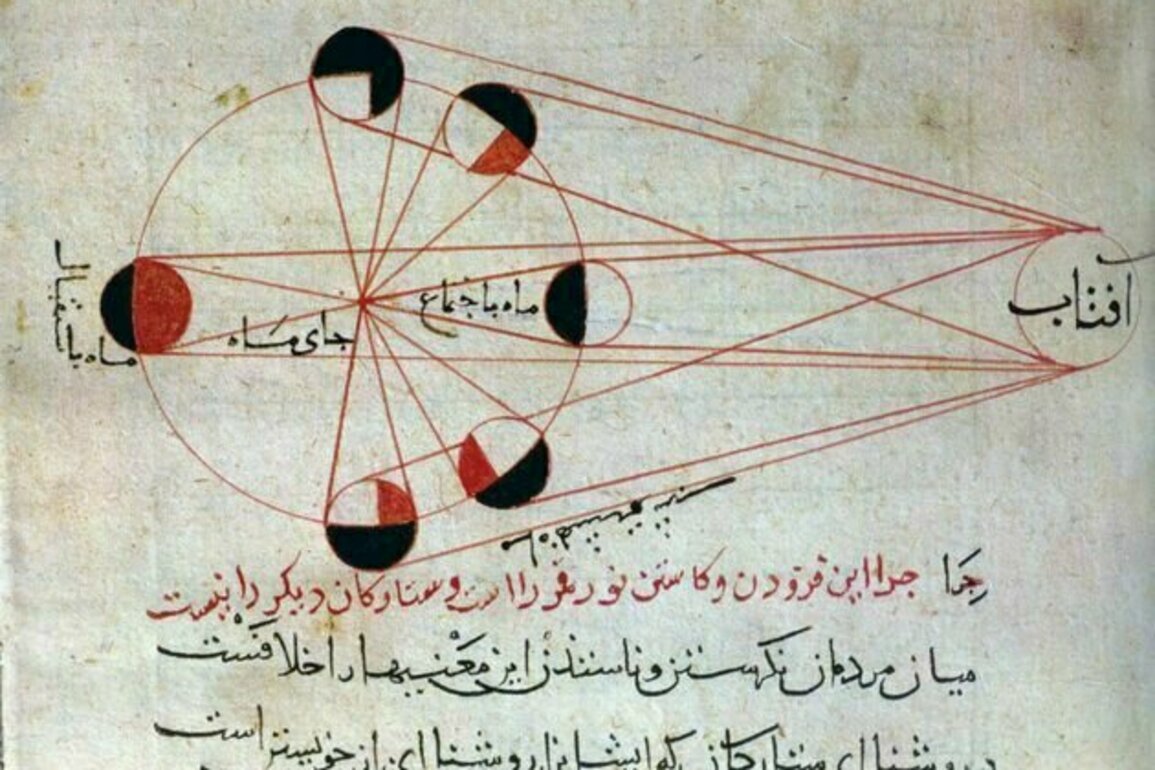 افتاب
ماه باجتماع
جای ماه
ماه باستقبال
جرا این فزودن وکاستن نور قمر را است و ستارکان دیکر را نیست
میان مردمان این معنیها را خلافست
روشنای ستارکان ایشانرا روشنای از خویشتن است